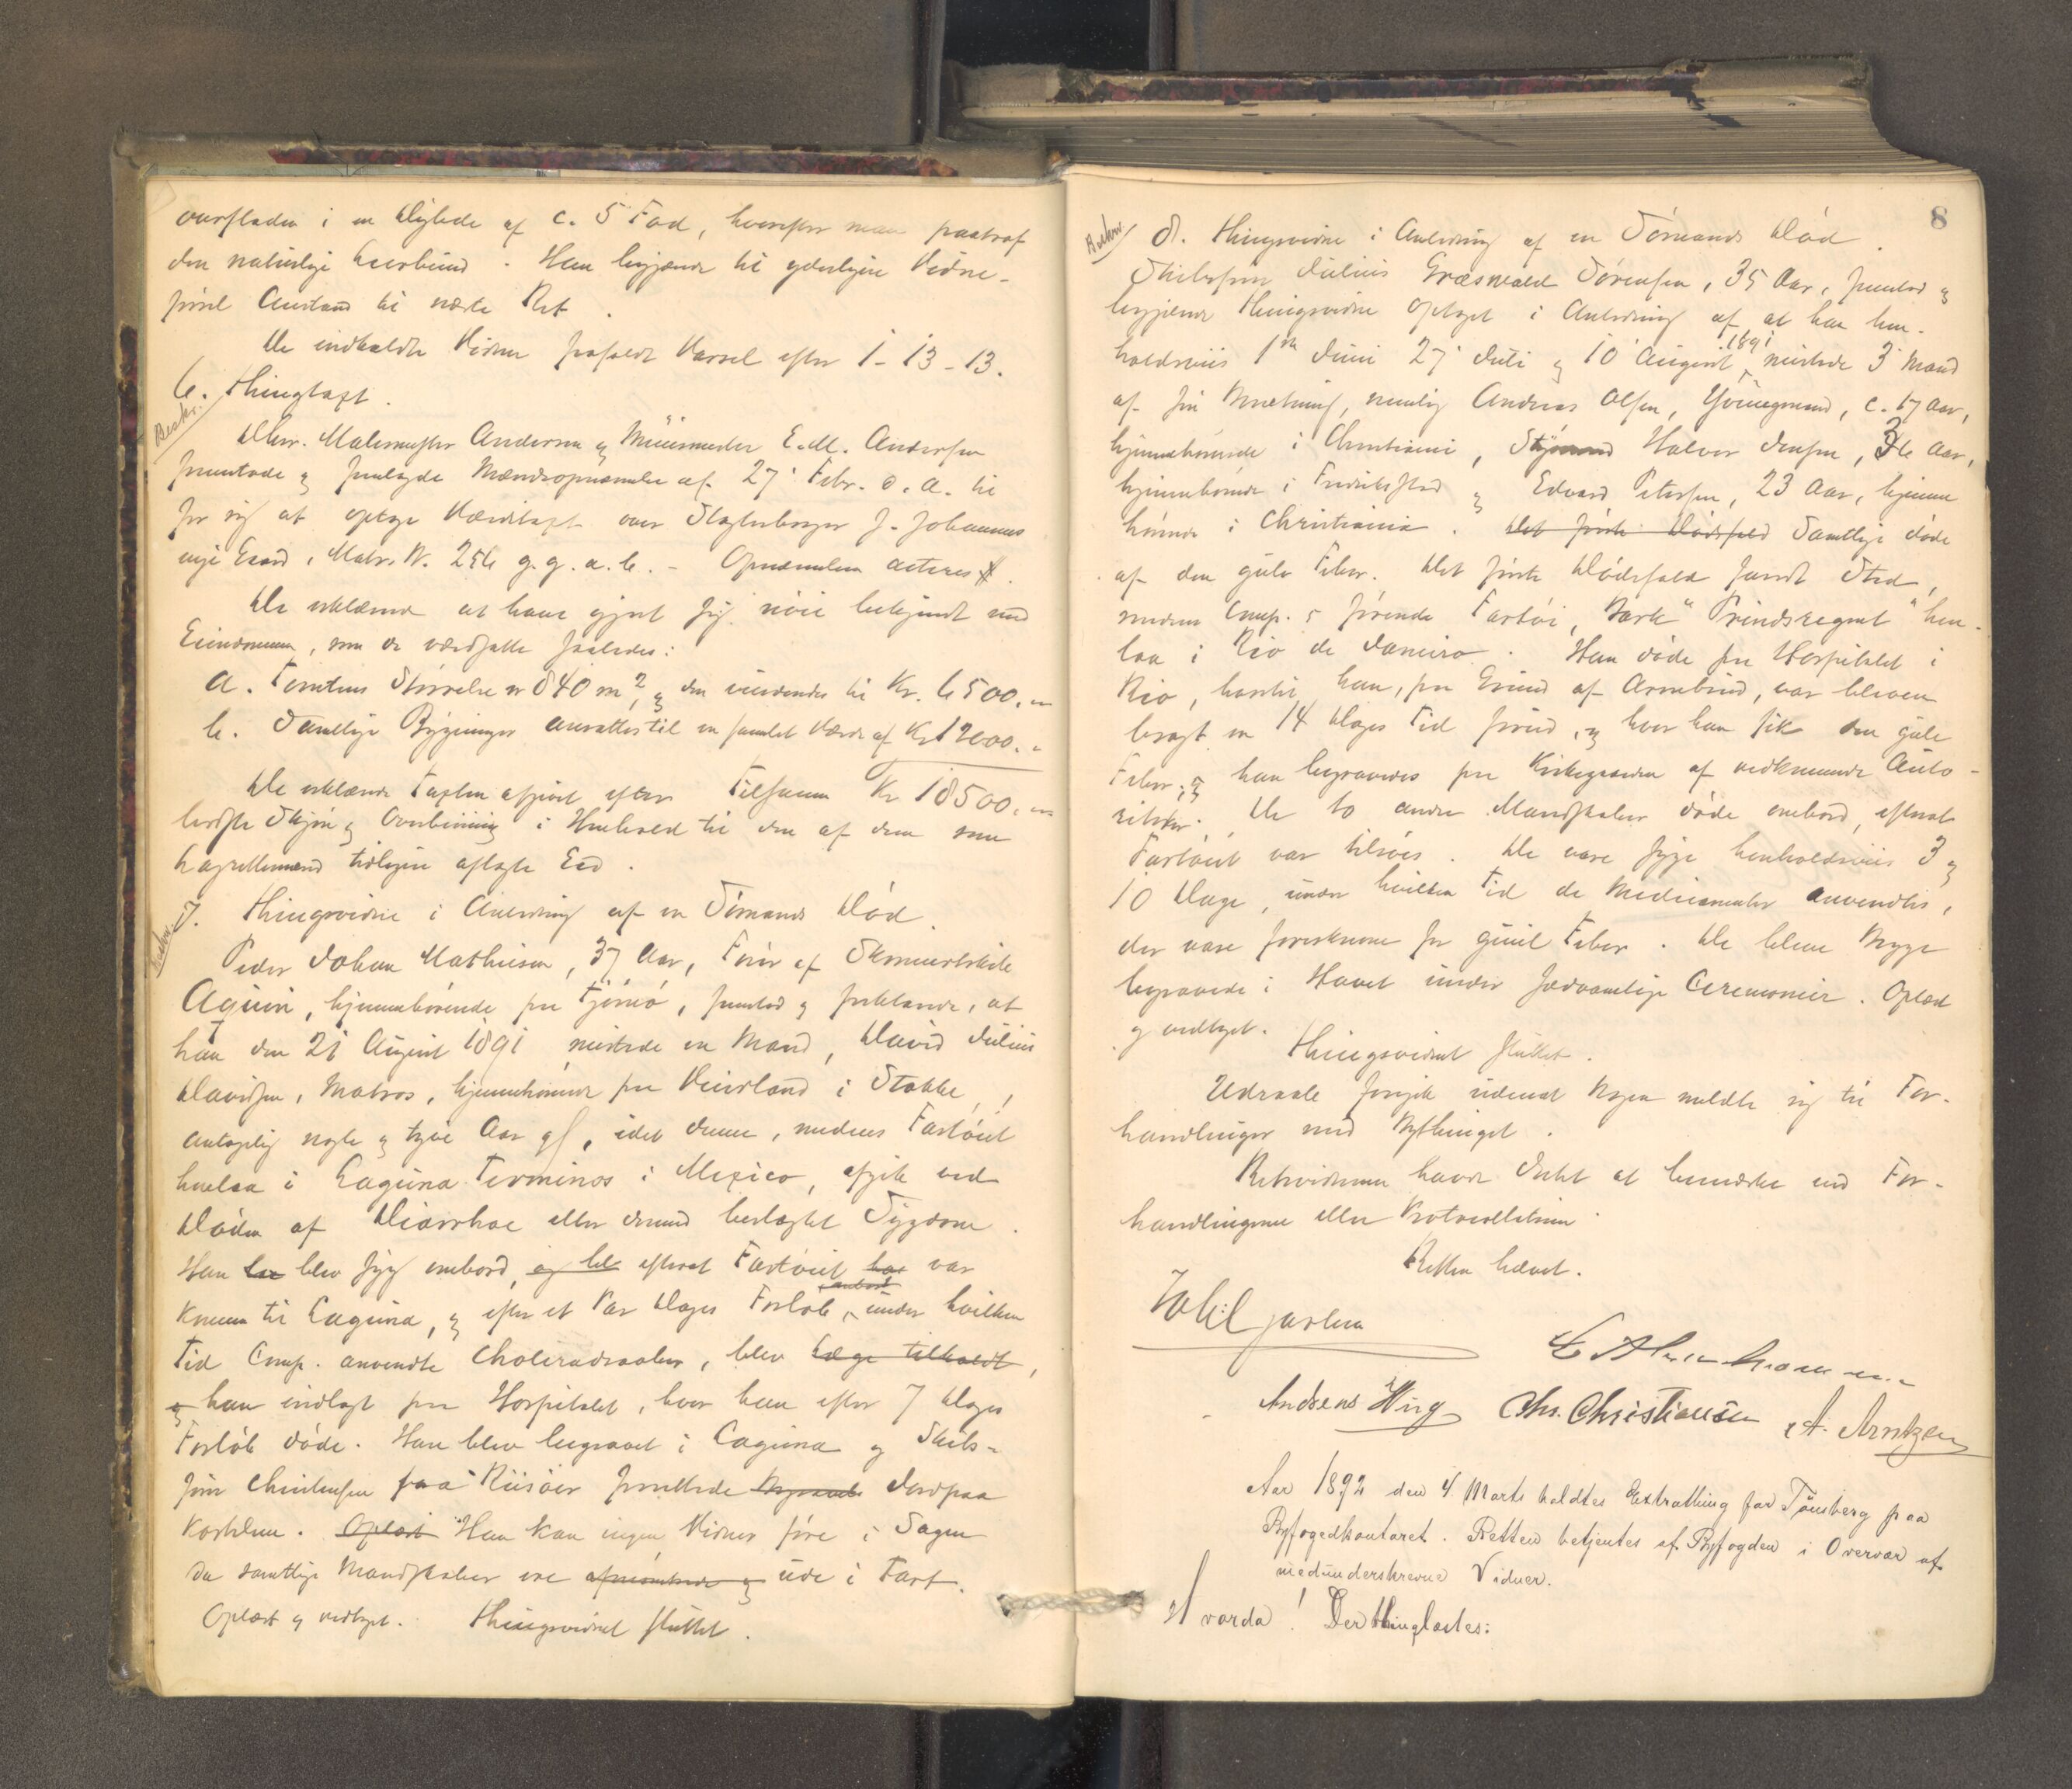 overfladen i en Dybde af c. 5 Fod, hvorefter man paatraf
den naturlige Leerbund. Han begjærede til yderligere Vidne-
førsel Anstand til næste Ret.
De indkaldte Vidner frafaldt Varsel efter 1-13-13.
6. Thingtaxt.
Beskr.
Dhrr. Malermester Andersen og Muurmester E. M. Andersen
fremstode og fremlagde Mændsopnævnelse af 27' Febr. d. A. til
for sig at optage Værditaxt over Slagterborger J. Johannes
nye Gaard, Matr. N. 256 g.g.a.b. - Opnævnelsen acteres.
De erklærede at have gjort sig nøie bekjendt med
Eiendommen, som de værdsatte saaledes:
a. Tomtens Størrelse er 840 m², og den vurderedes til Kr. 6500.
b. Samtlige Bygninger ansattes til en samlet Værdi af Kr 12000.
De erklærede Taxten afgivet efter Tilsammen Kr 18500.
bedste Skjøn og Overbeviisning i Henhold til den af dem som
Lagrettemænd tidligere aflagte Eed.
7. Thingsvidne i Anledning af en Sømands Død.
Beskr.
Peder Johan Mathiesen, 37 Aar, Fører af Skonnertskib
Aquin, hjemmehørende paa Tjømø, fremstod og forklarede, at
han den 21 August 1891 mistede en Mand, David Julius
Davidsen, Matros, hjemmehørende paa Veierland i Stokke,
antagelig nogle og tyve Aar gl., idet denne, medens Fartøiet
henlaa i Laguna Terminos i Mexico, afgik ved
Døden af Diarrhoe eller dermed beslægtet Sygdom.
Han blev syg ombord, og ble efterat Fartøiet har var
kommen til Laguna, og efter et Par Dages Forløb, ombord under hvilken
Tid Comp. anvendte Choleradraaber, blev Læge tilkaldt,
og han indlagt paa Hospitalet, hvor han efter 7 Dages
Forløb døde. Han blev begravet i Laguna og Skibs-
fører Christensen fra Riisøer forrettede Jordpaa
kastelsen. Oplæst Han kan ingen Vidner føre i Sagen
da samtlige Mandskaber ere afmønstrede og ude i Fart.
Oplæst og vedtaget. Thingsvidnet sluttet.
8
Beskrev
8. Thingsvidne i Anledning af en Sømands Død.
Skibsfører Julius Græsvold Sørensen, 35 Aar, fremstod og
begjærede Thingsvidne optaget i Anledning af at han hen-
holdsviis 1ste Juni 27' Juli og 10 August 1891 mistede 3 Mand
af sin Besætning, nemlig Andreas Olsen, Yvungmand, c. 17 Aar,
hjemmehørende i Christiania, Styrmand Halvor Jensen, 36 Aar,
hjemmehørende i Fredriksstad og Edvard Petersen, 23 Aar, hjemme
hørende i Christiania. Det første Dødsfald Samtlige døde
af den gule Feber. Det første Dødsfald fandt Sted,
medens Comp.s førende Fartøi, Bark "Prindsregent" hen-
laa i Rio de Janeiro. Han døde paa Hospitalet i
Rio, hvortil han, paa Grund af Armbrud, var bleven
bragt en 14 Dages Tid forud, og hvor han fik den gule
Feber; og han begravedes paa Kirkegaarden af vedkommende Auto-
riteter. De to andre Mandskaber døde ombord, efterat
Fartøiet var tilsøes. De vare syge henholdsviis 3 og
10 Dage, under hvilken Tid de Medicamenter anvendtes,
der vare foreskrevne for guul Feber. De bleve Begge
begravede i Havet under sædvanlige Ceremonier. Oplæst
og vedtaget.
Thingsvidnet sluttet.
Udraab foregik uden at Nogen meldte sig til For-
handlinger med Bythinget.
Retsvidnerne havde Intet at bemærke ved For-
handlingerne eller Protocollationen.
Retten hævet.
Andreas Wiig Chr. Christiansen A. Arntzen
Aar 1892 den 4. Marts holdtes Extrathing for Tønsberg paa
Byfogedkontoret. Retten betjentes af Byfogden i Overvær af
medunderskrevne Vidner.
Hvorda! Der thinglæstes: